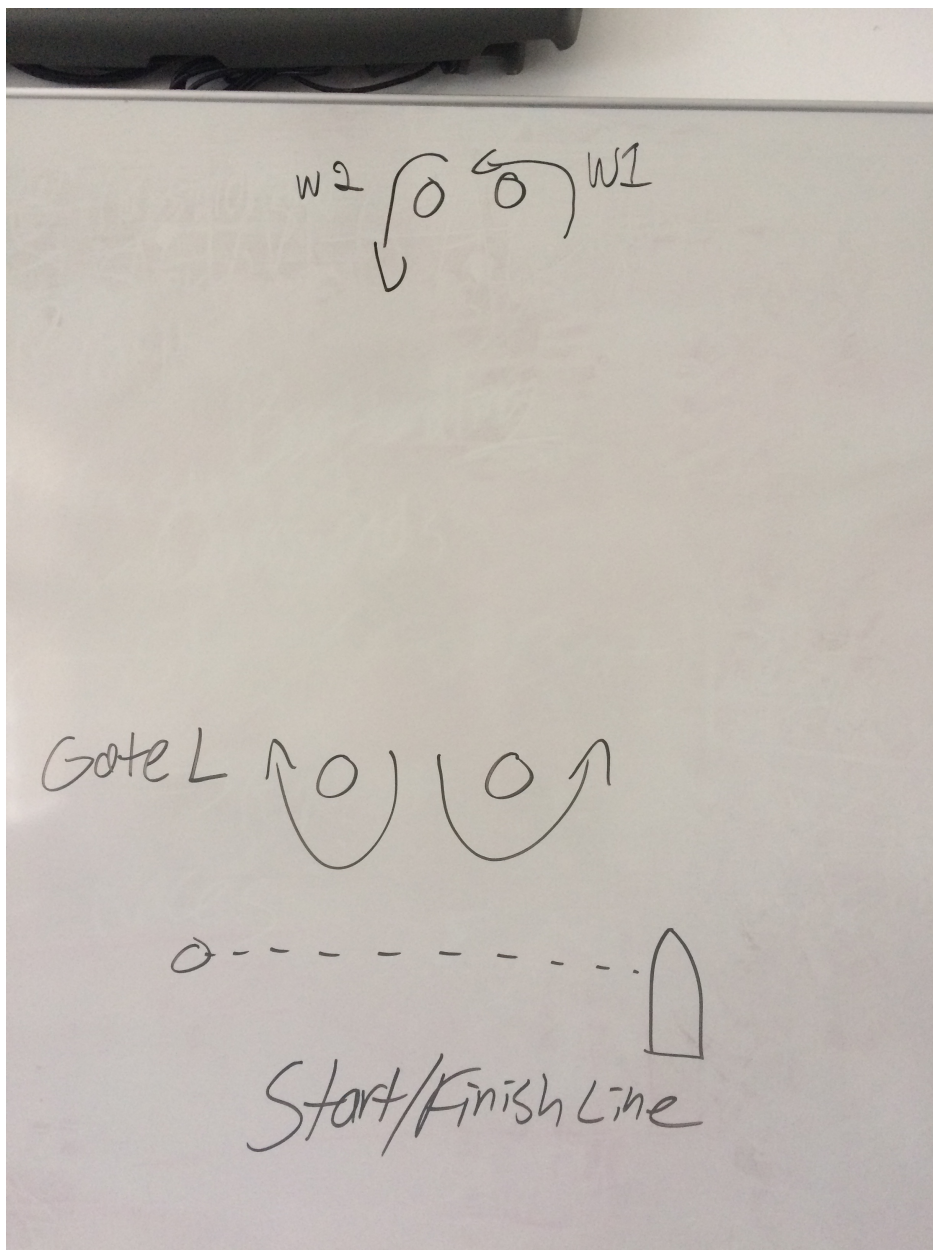 W2
W1
Gate L
Start/Finish Line